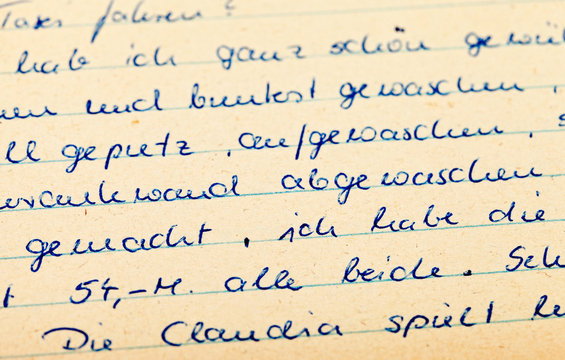 Taxi fahren?
hab ich ganz schön gewü
nen und buntest gewaschen,
ll geputz, aufgewaschen, s
rankwand abgewaschen
gemacht, ich habe die
t 54,-M. alle beide. Sch
Die Claudia spielt he